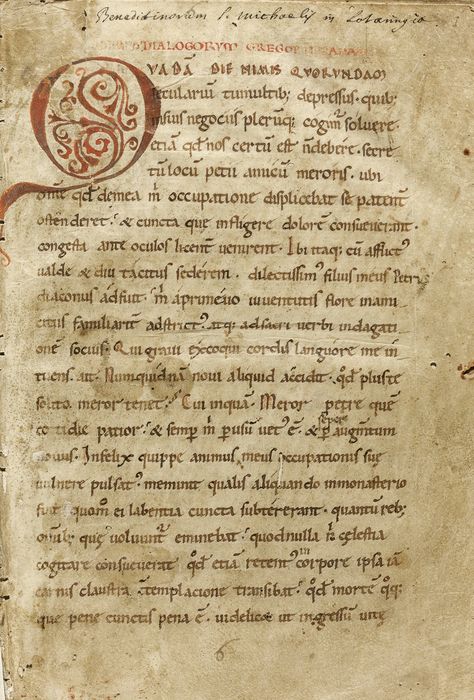 Benedictinorum S. Michaelis in Lotaringia
DIALOGORVM GREGORII PAPAE
QVADĀ DIE NIMIS QVORVNDAM
secularıū tumultib; depressus. quib;
in suis negociis plerūq; cogim̄ soluere
etiā qd̄ nos certum est n̄ debere. secre
tū locū petii amicū meroris. ubi
omne qd̄ de mea m̄ occupatione displicebat se patent̄
ostenderet. & cuncta que infligere dolorē consueuerant.
congesta ante oculos licent̄ uenirent. Ibi itaq; cū afflict᾿
ualde & diu tacitus sederem. dilectissim᾿ filius meus Petr᾿
diaconus adfuit. m̄ a primeuo iuuentutis flore in ami
citiis familiarit̄ adstrict᾿. atq; ad sacri uerbi indagati
onē socius. Qui graui excoqui cordis languore me in
tuens. ait. Nunquidnā noui aliquid accidit. qd̄ plus te
solito meror tenet. Cui inquam. Meror petre quē
cotidie patior. & semp̄ m̄ p̄ usum uet᾿ ē. & semper p̄ augmentum
nouus. Infelix quippe animus meus occupationis sue
uulnere pulsat᾿. meminit qualis aliquando in monasterio
fuit. quom̄ ei labentia cuncta subtererant. quantū reb;
omib; que uoluunt̄ eminebat. quod nulla n̄ celestia
cogitare consueuerat. qd̄ etiā retent᾿ in corpore ipsa iā
carnis claustra ↄtemplacione transibat. qd̄ mortē q̄q;
que pene cunctis pena ē. uidelicet ut ingressum uite
6